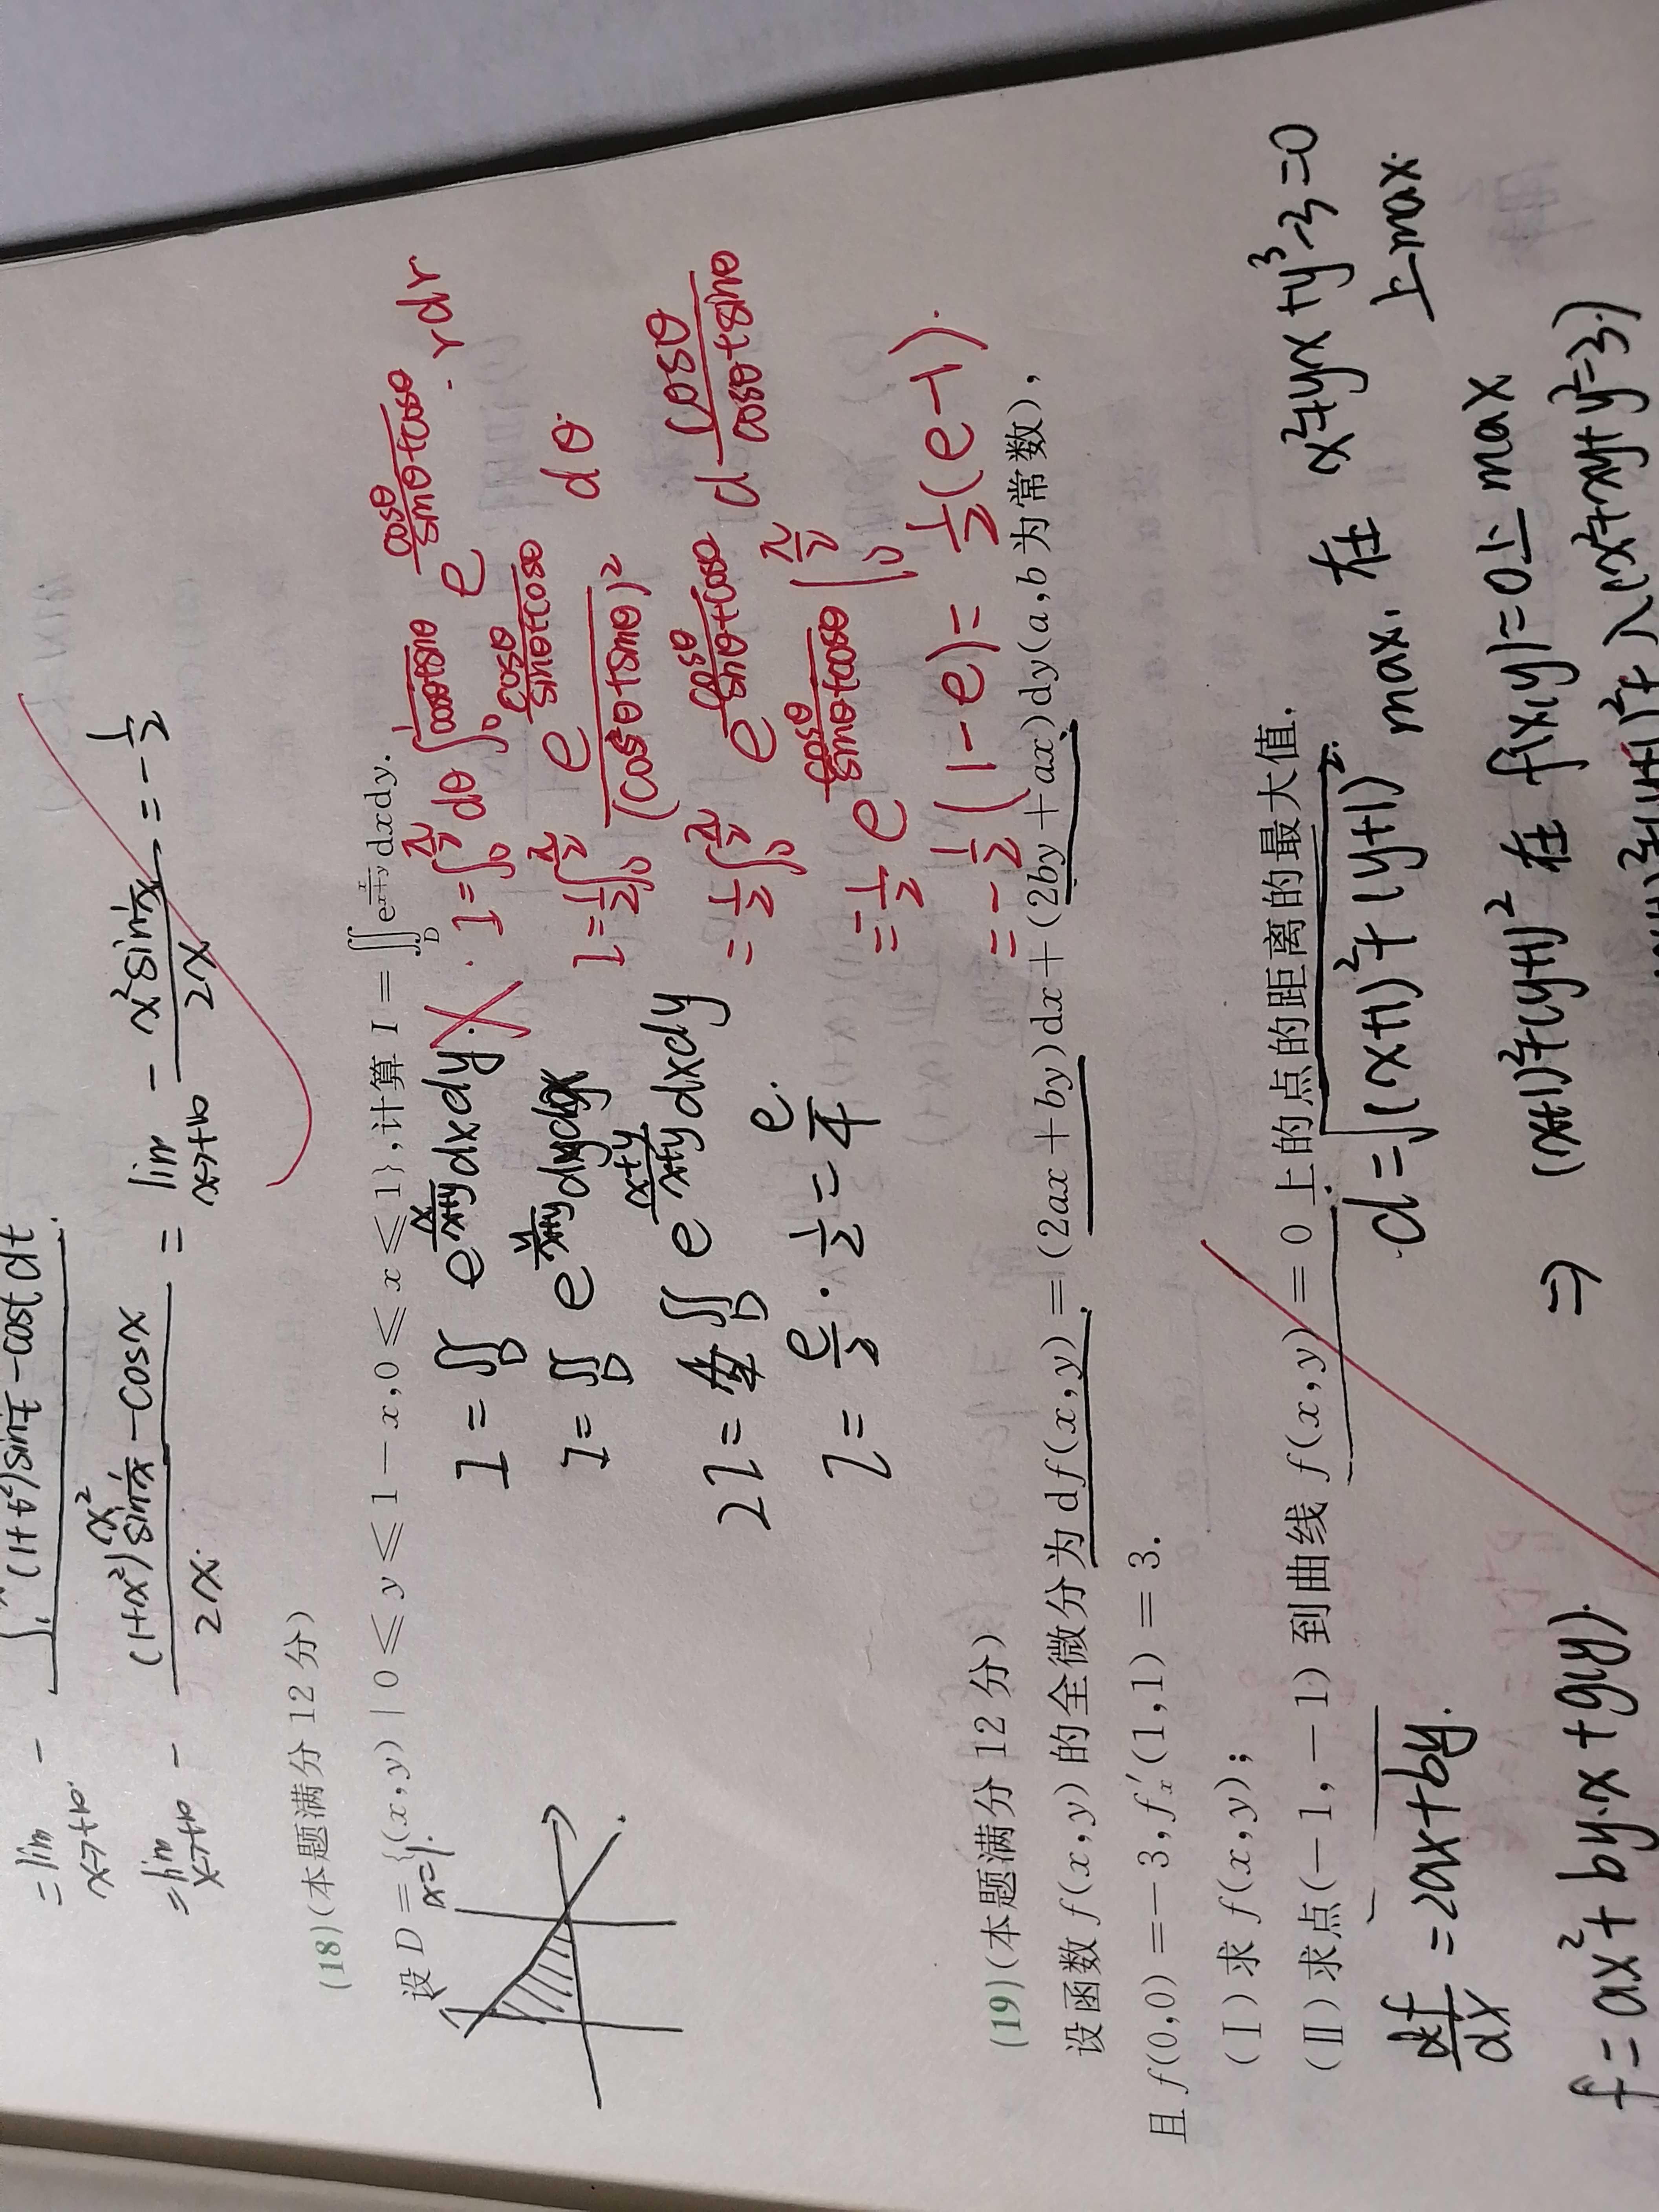 = lim
x→+∞
-
∫₁ˣ (1+t²)sin 1/t - cost dt
= lim
x→+∞
- (1+x²)x² sin 1/x - cosx / 2x
= lim
x→+∞
- x² sin 1/x / 2x = - 1/2
(18)(本题满分 12 分)
设 D = {(x,y) | 0 ⩽ y ⩽ 1 − x, 0 ⩽ x ⩽ 1}, 计算 I = ∬_D e^{x/(x+y)} dxdy.
x=1.
I = ∬_D e^{x/(x+y)} dxdy.
I = ∬_D e^{y/(x+y)} dydx
2I = ∬_D e^{(x+y)/(x+y)} dxdy
I = e/2 · 1/2 = e/4.
I = ∫₀^{π/2} dθ ∫₀^{1/(cosθ+sinθ)} e^{cosθ/(sinθ+cosθ)} · rdr
I = 1/2 ∫₀^{π/2} e^{cosθ/(sinθ+cosθ)} / (cosθ+sinθ)² dθ.
= - 1/2 ∫₀^{π/2} e^{cosθ/(sinθ+cosθ)} d cosθ/(cosθ+sinθ)
= - 1/2 e^{cosθ/(sinθ+cosθ)} |₀^{π/2}
= - 1/2 (1-e) = 1/2 (e-1).
(19)(本题满分 12 分)
设函数 f(x,y) 的全微分为 df(x,y) = (2ax + by)dx + (2by + ax)dy(a,b 为常数),
且 f(0,0) = −3, f′ₓ(1,1) = 3.
(Ⅰ) 求 f(x,y);
(Ⅱ) 求点(−1,−1) 到曲线 f(x,y) = 0 上的点的距离的最大值.
df/dx = 2ax+by.
f = ax² + by·x + g(y).
d = √(x+1)²+(y+1)² max, 在 x²+yx+y³-3=0
上max.
⇒ (x+1)²+(y+1)² 在 f(x,y)=0上 max
λ(x²+xy+y²-3)